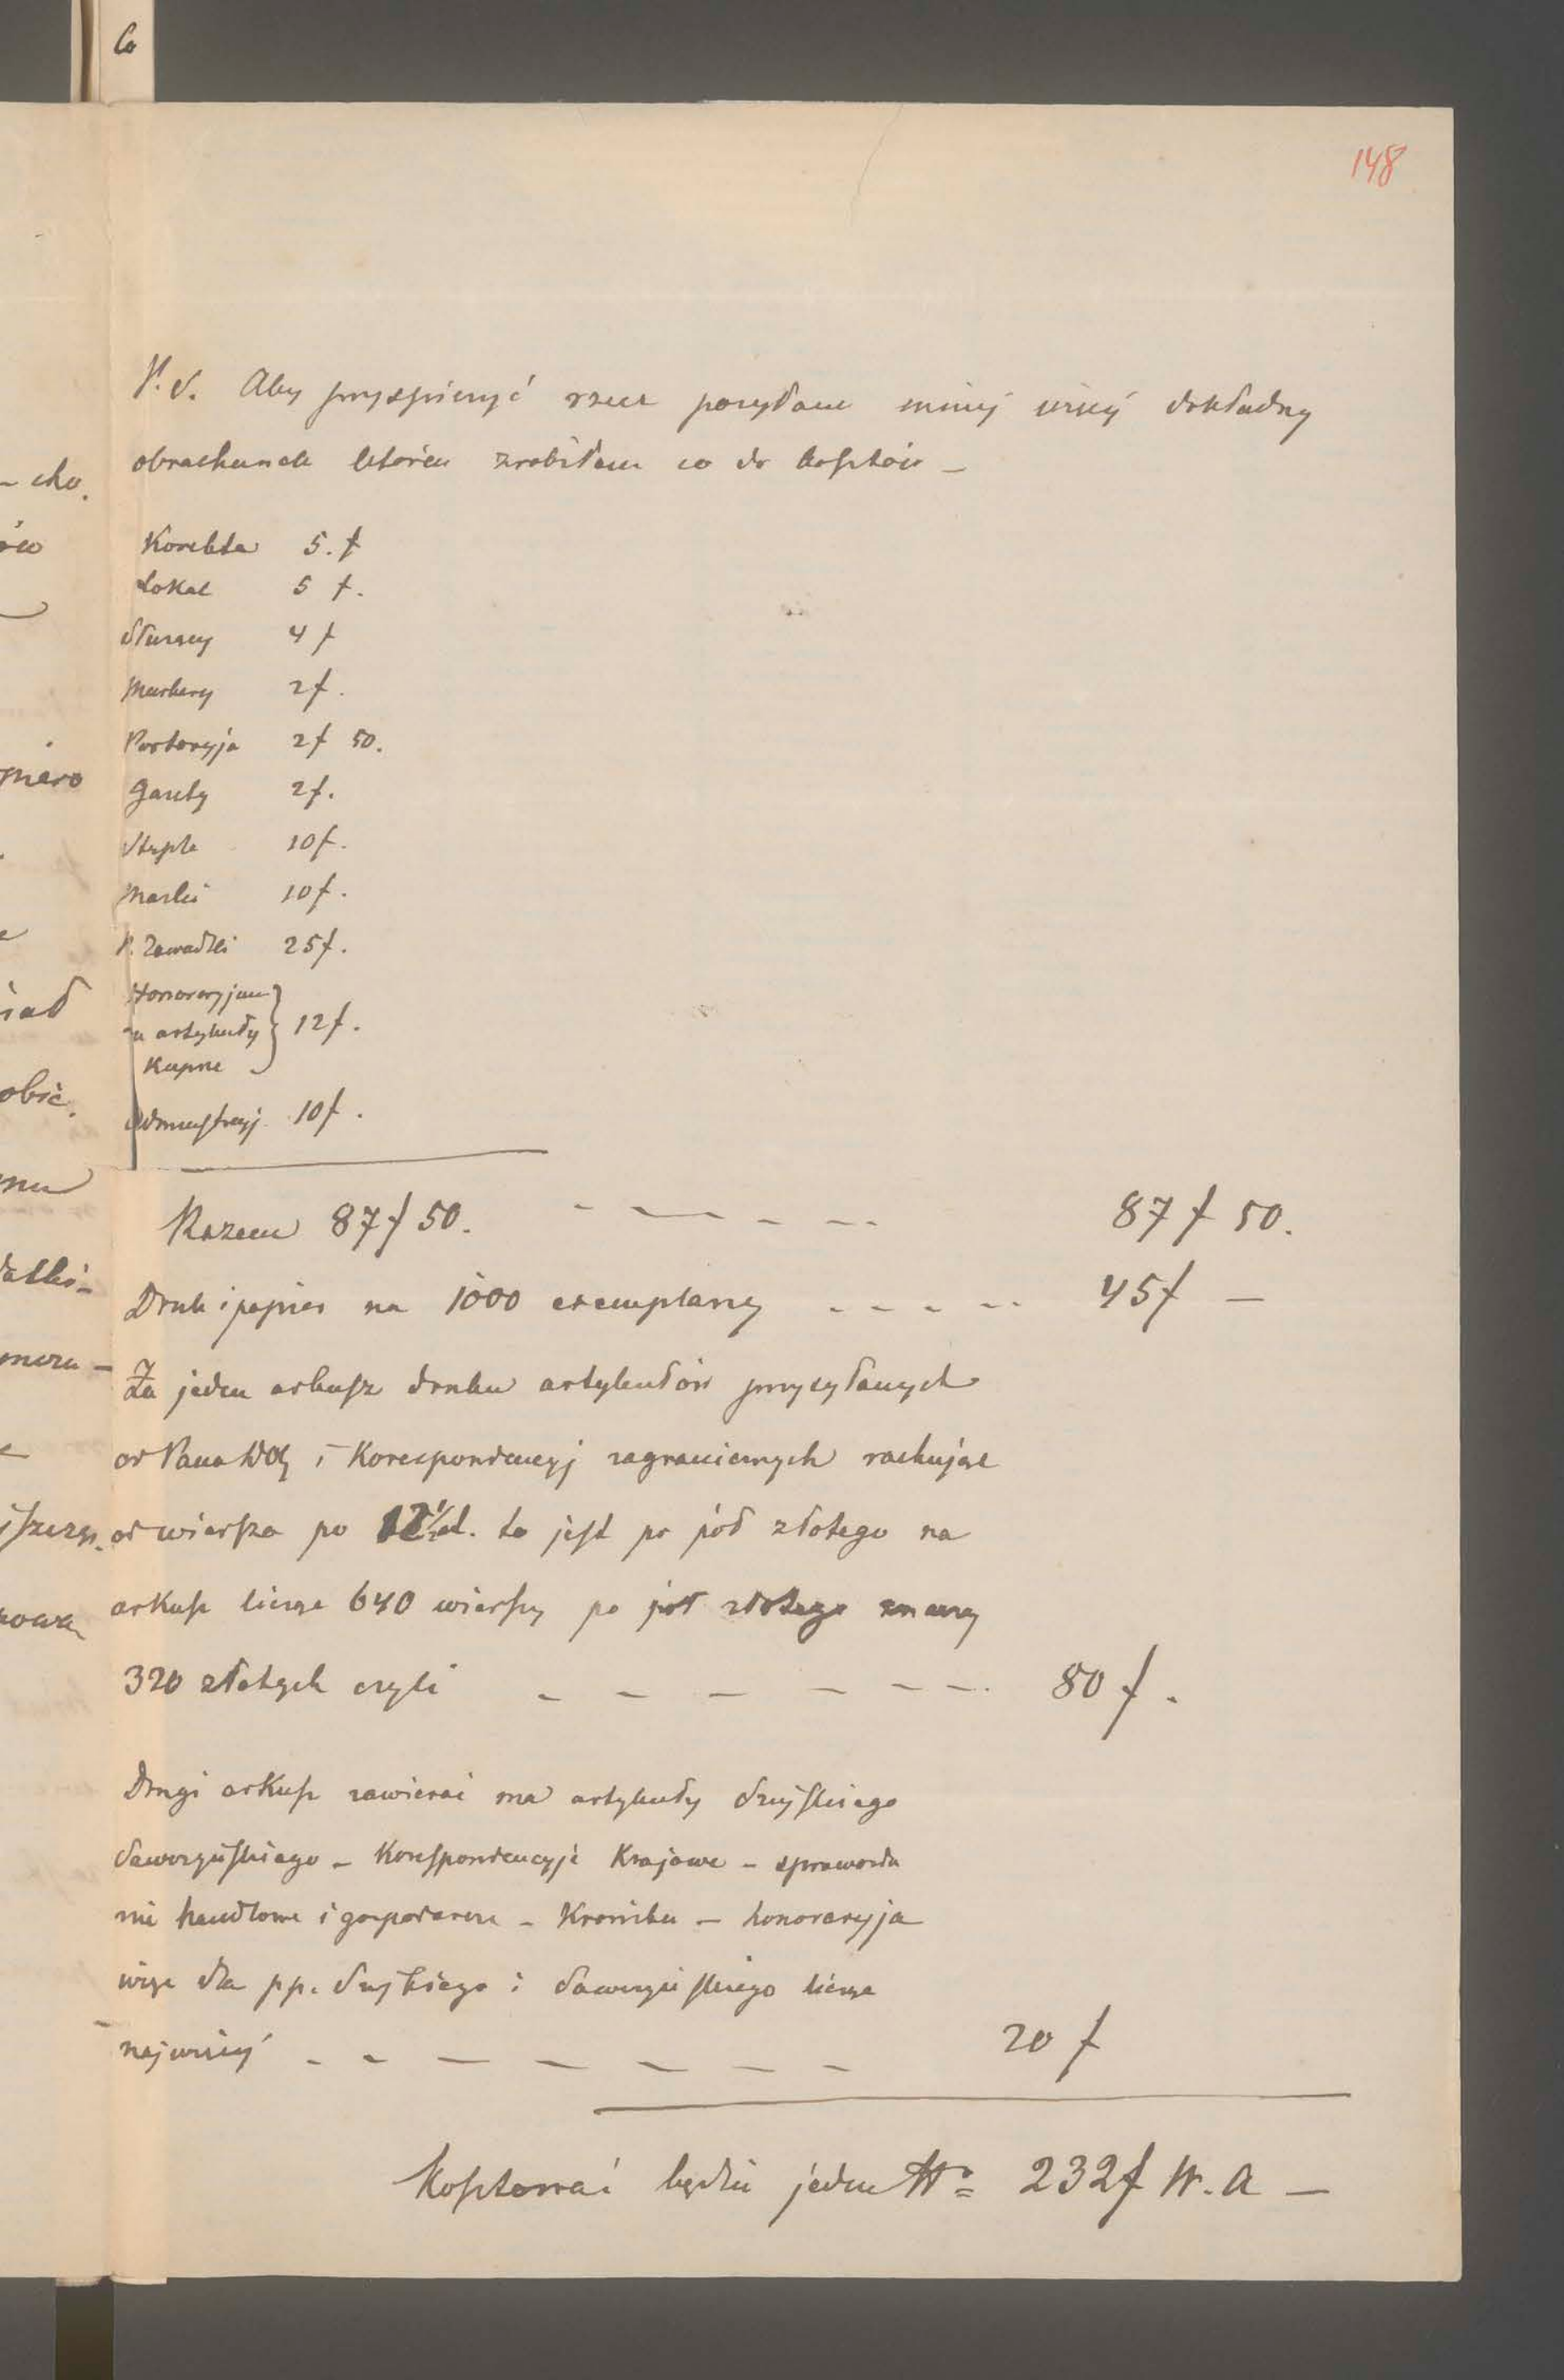 Co
148
P. S. Aby przyspieszyć rzecz posyłam mniej więcej dokładny
obrachunek który zrobiłem co do kosztów –
Korekta 5. f
Lokal 5 f.
Służący 4 f
Markery 2 f.
Portoryja 2 f 50.
Gazety 2 f.
Stęple 10 f.
Marki 10 f.
P. Zawadzki 25 f.
Honoraryjum
za artykuły 12 f.
Kupne
Administracyj. 10 f.
Razem 87 f 50. - - - - - 87 f 50.
Druk i papier na 1000 exemplarzy - - - - - 45 f –
Za jeden arkusz druku artykułów przysyłanych
od Pana i Korespondencyj zagranicznych rachując
od wiersza po 12½ ct. to jest po pół złotego na
arkusz liczę 640 wierszy po pół złotego znaczy
320 złotych czyli - - - - - - - 80 f.
Drugi arkusz zawierać ma artykuły Szujskiego
Sawczyńskiego – Korespondencyje Krajowe – sprawozda
nie handlowe i gospodarcze – Kronika – honoraryja
więc dla pp. Szujskiego i Sawczyńskiego liczę
najwięcej - - - - - - - 20 f
Kosztować będzie jeden No 232 f W. A –
- cho.
ów
piero
iad
obić.
mu